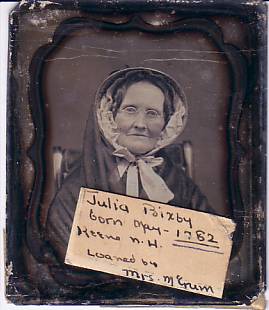 Julia Bixby
born May - 1782
Keene N. H.
Loaned by
Mrs. McGrim